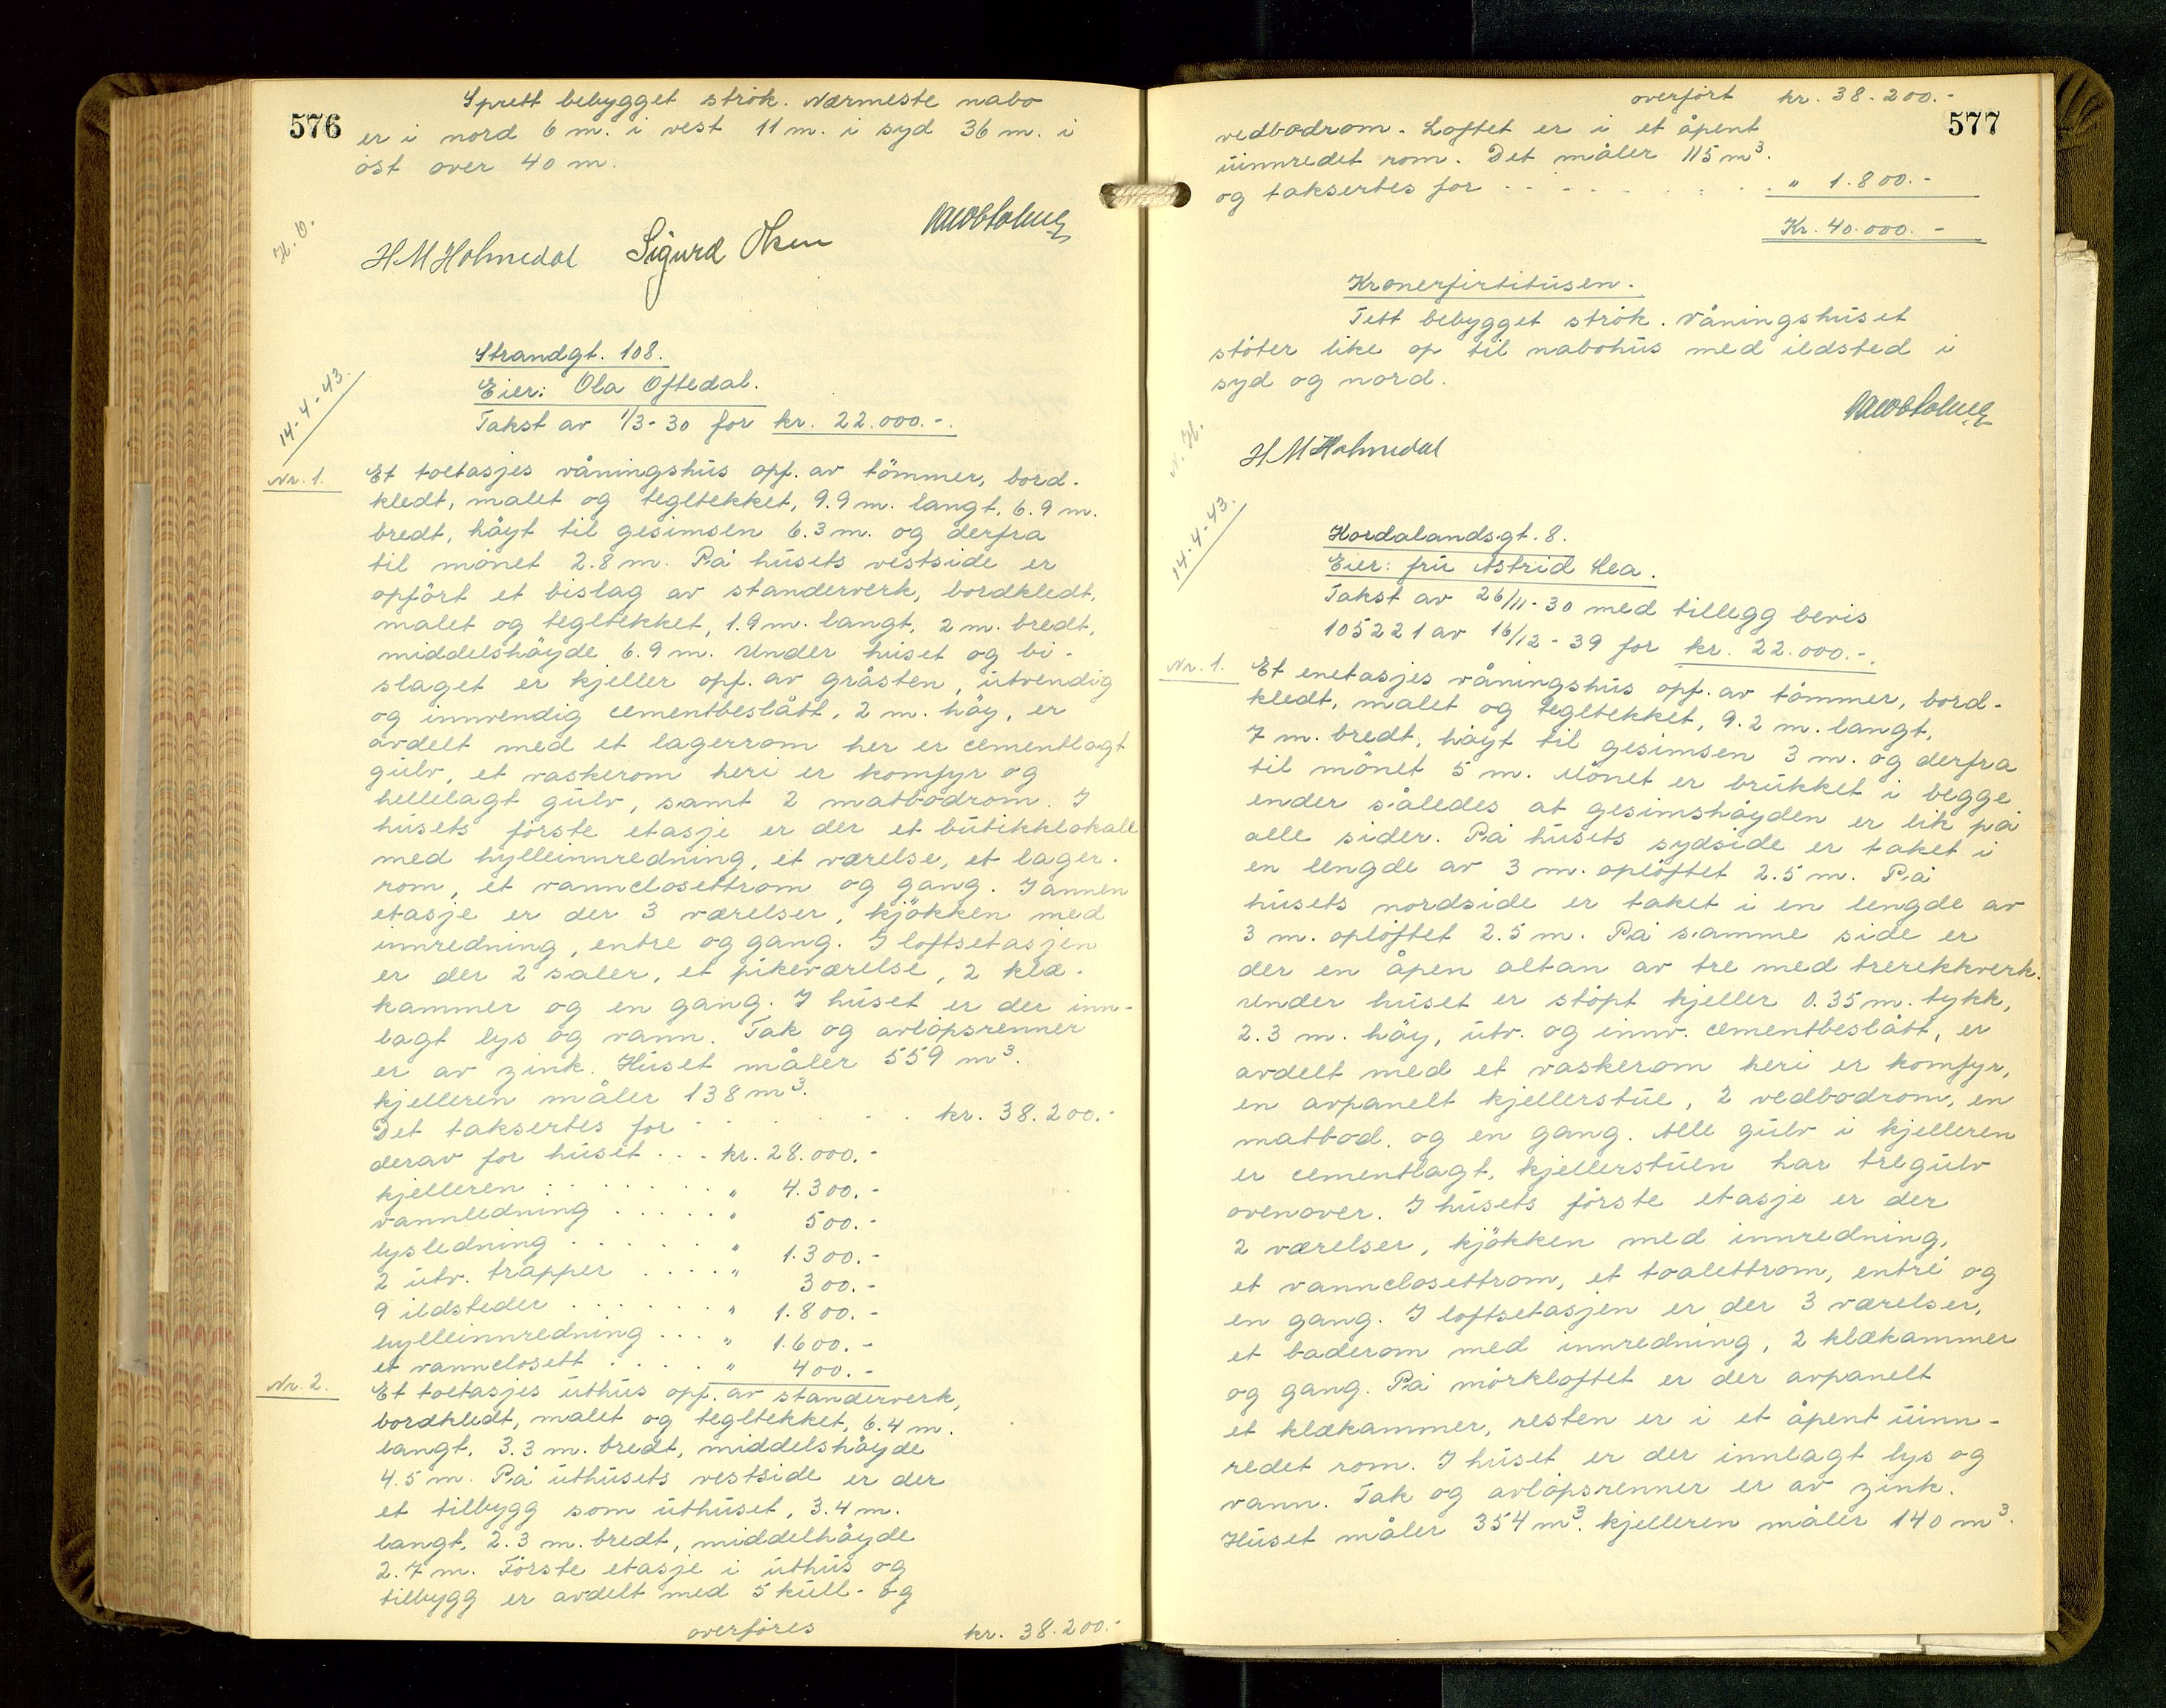 576
Sprett bebygget strök. Nærmeste nabo
er i nord 6 m. i vest 11 m. i syd 36 m. i
öst over 40 m.
H M Holmedal Sigurd
14-4-43.
Strandgt. 108.
Eier: Ola Oftedal.
Takst av 1/3-30 for kr. 22.000.-.
Nr. 1.
Et toetasjes våningshus opf. av tömmer, bord-
kledt, malet og tegltekket, 9.9 m. langt, 6.9 m.
bredt, höyt til gesimsen 6.3 m. og derfra
til mönet 2.8 m. På husets vestside er
opfört et bislag av standerverk, bordkledt,
malet og tegltekket, 1.9 m. langt, 2 m. bredt,
middelshöyde 6.9 m. Under huset og bi-
slaget er kjeller opf. av gråsten, utvendig
og innvendig cementbeslått, 2 m. höy, er
avdelt med et lagerrom her er cementlagt
gulv, et vaskerom heri er komfyr og
hellelagt gulv, samt 2 matbodrom. I
husets förste etasje er der et butikklokale
med hylleinnredning, et værelse, et lager-
rom, et vannclosettrom og gang. I annen
etasje er der 3 værelser, kjökken med
innredning, entre og gang. I loftsetasjen
er der 2 saler, et pikeværelse, 2 klæ-
kammer og en gang. I huset er der inn-
lagt lys og vann. Tak og avlöpsrenner
er av zink. Huset måler 559 m³.
kjelleren måler 138 m³.
Det taksertes for - - . . . . kr. 38.200.-
derav for huset . . . kr. 28.000.-
kjelleren : . . . . . . „ 4.300.-
vannledning . . . . . „ 500.-
lysledning . . . . . . „ 1.300.-
2 utv. trapper . . . . „ 300.-
9 ildsteder . . . . . . „ 1.800.-
hylleinnredning . . . „ 1.600.-
et vannclosett . . . . „ 400.-
Nr. 2.
Et toetasjes uthus opf. av standerverk,
bordkledt, malet og tegltekket, 6.4 m.
langt, 3.3 m. bredt, middelshöyde
4.5 m. På uthusets vestside er der
et tilbygg som uthuset, 3.4 m.
langt, 2.3 m. bredt, middelhöyde
2.7 m. Förste etasje i uthus og
tilbygg er avdelt med 5 kull- og
overföres kr. 38.200.-
577
overfört kr. 38.200.-
vedbodrom. Loftet er i et åpent
uinnredet rom. Det måler 115 m³.
og taksertes for . . . . . . . . „ 1.800.-
Kr. 40.000.-
Kronerfirtitusen.
Tett bebygget strök. Våningshuset
stöter like op til nabohus med ildsted i
syd og nord.
H M Holmedal
14-4-43.
Hordalandsgt. 8.
Eier: fru Astrid Lea.
Takst av 26/11-30 med tillegg bevis
105221 av 16/12-39 for kr. 22.000.-.
Nr. 1.
Et enetasjes våningshus opf. av tömmer, bord-
kledt, malet og tegltekket, 9.2 m. langt,
7 m. bredt, höyt til gesimsen 3 m. og derfra
til mönet 5 m. Mönet er brukket i begge
ender således at gesimshöyden er lik på
alle sider. På husets sydside er taket i
en lengde av 3 m. oplöftet 2.5 m. På
husets nordside er taket i en lengde av
3 m. oplöftet 2.5 m. På samme side er
der en åpen altan av tre med trerekkverk.
Under huset er stöpt kjeller 0.35 m. tykk,
2.3 m. höy, utv. og innv. cementbeslått, er
avdelt med et vaskerom heri er komfyr,
en avpanelt kjellerstue, 2 vedbodrom, en
matbod, og en gang. Alle gulv i kjelleren
er cementlagt, kjellerstuen har tregulv
ovenover. I husets förste etasje er der
2 værelser, kjökken med innredning,
et vannclosettrom, et toalettrom, entré og
en gang. I loftsetasjen er der 3 værelser,
et baderom med innredning, 2 klækammer
og gang. På mörkloftet er der avpanelt
et klækammer, resten er i et åpent uinn-
redet rom. I huset er der innlagt lys og
vann. Tak og avlöpsrenner er av zink.
Huset måler 354 m³. kjelleren måler 140 m³.